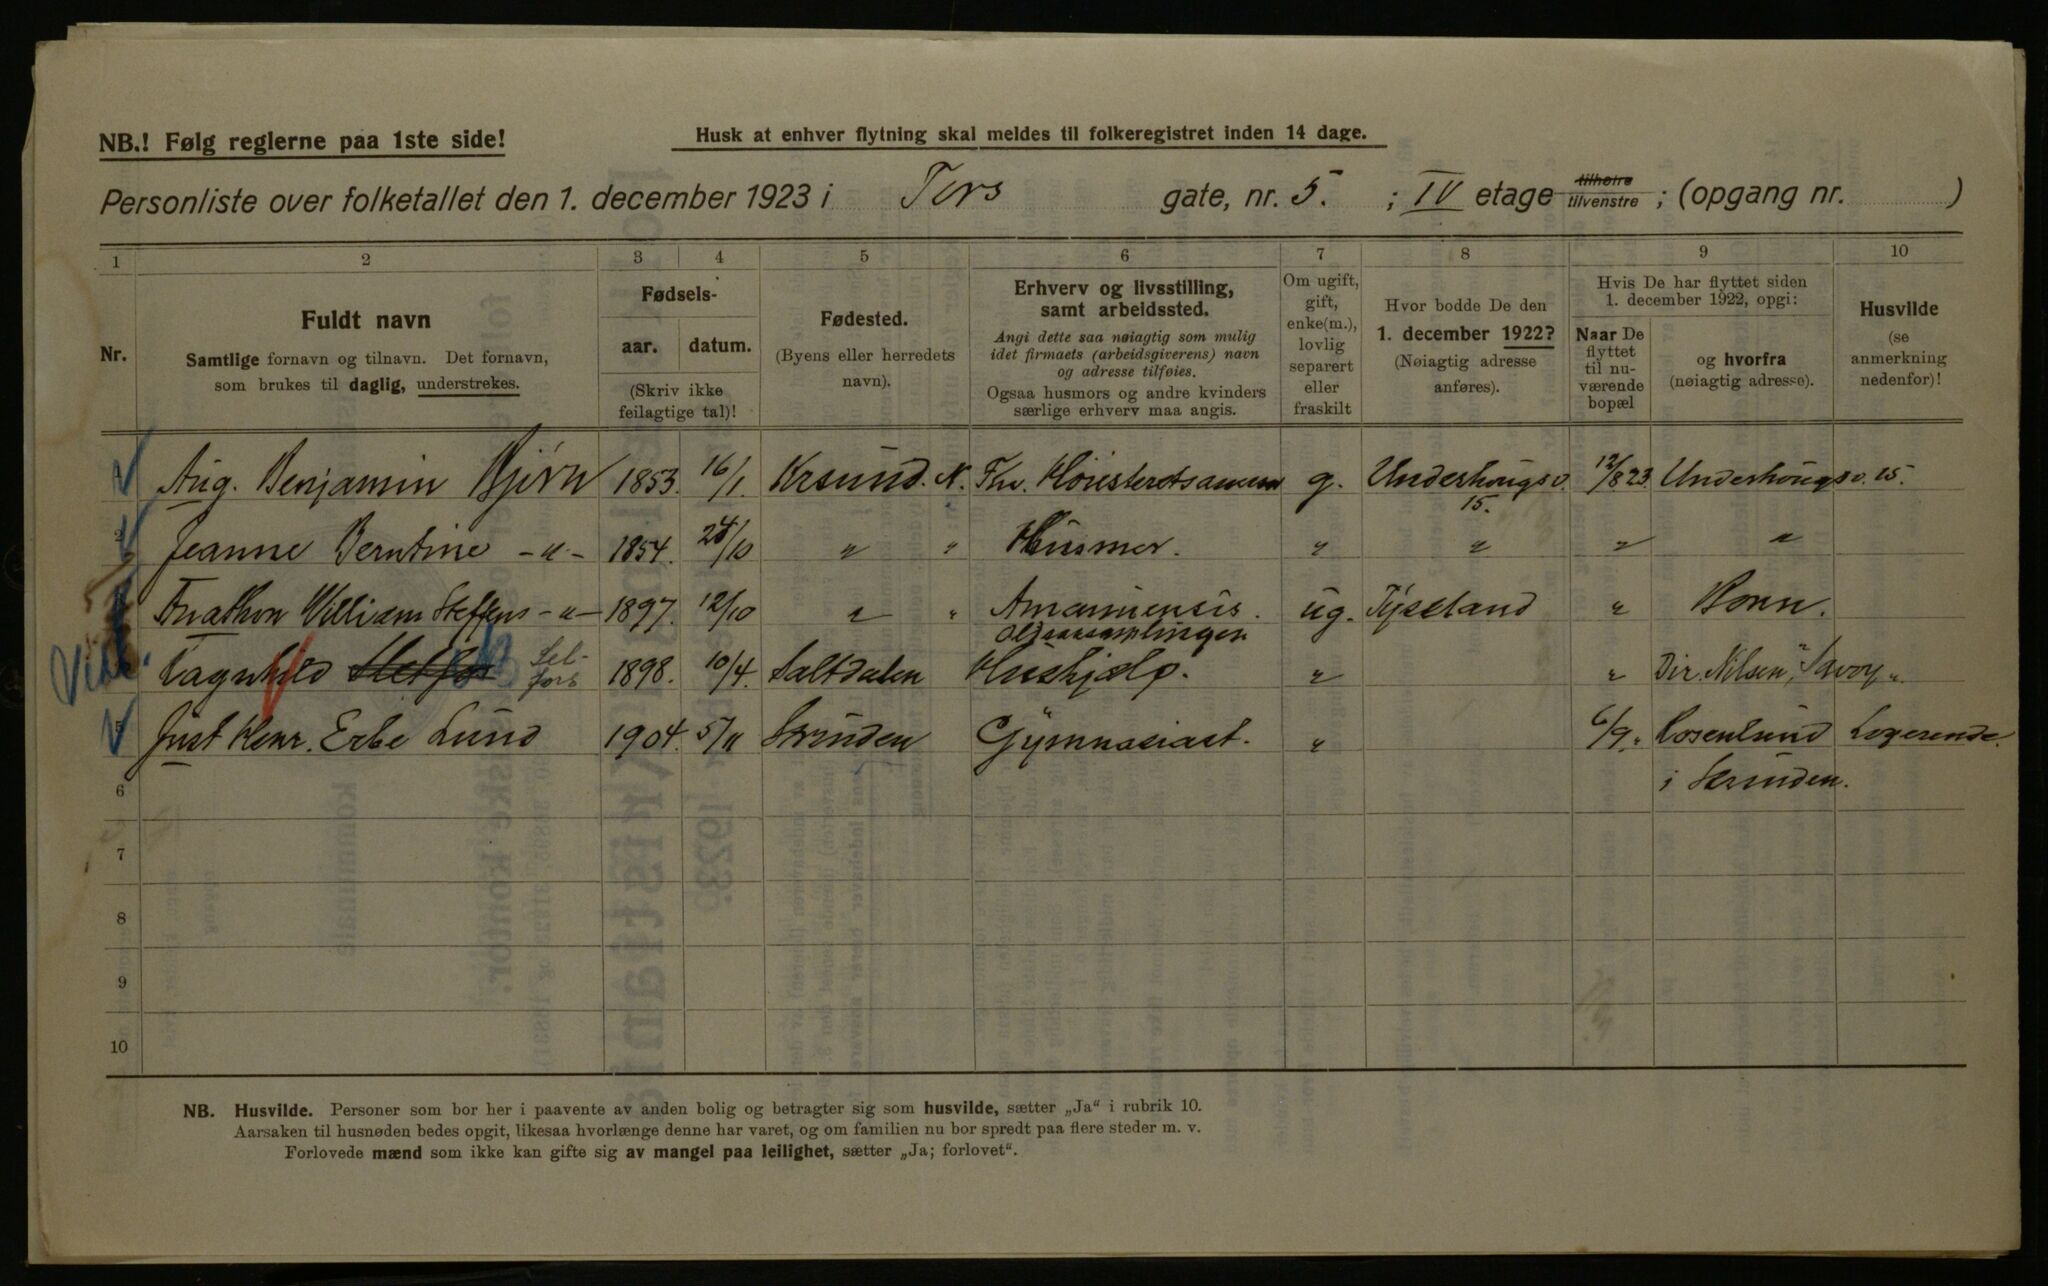 NB.! Følg reglerne paa 1ste side!
Husk at enhver flytning skal meldes til folkeregistret inden 14 dage.
Personliste over folketallet den 1. december 1923 i Tors gate, nr. 5. ; IV etage tilhøire tilvenstre ; (opgang nr. )
1 2 3 4 5 6 7 8 9 10
Nr.
Fuldt navn
Samtlige fornavn og tilnavn. Det fornavn,
som brukes til daglig, understrekes.
Fødsels-
aar. datum.
(Skriv ikke
feilagtige tal)!
Fødested.
(Byens eller herredets
navn).
Erhverv og livsstilling,
samt arbeidssted.
Angi dette saa nøiagtig som mulig
idet firmaets (arbeidsgiverens) navn
og adresse tilføies.
Ogsaa husmors og andre kvinders
særlige erhverv maa angis.
Om ugift,
gift,
enke(m.),
lovlig
separert
eller
fraskilt
Hvor bodde De den
1. december 1922?
(Nøiagtig adresse
anføres).
Hvis De har flyttet siden
1. december 1922, opgi:
Naar De
flyttet
til nu-
værende
bopæl
og hvorfra
(nøiagtig adresse).
Husvilde
(se
anmerkning
nedenfor)!
Aug. Benjamin Bjørn 1853. 16/1. Krsund. N. Fhv. g. Underhaugsv. 15. 12/8 23. Underhaugsv. 15.
2 Jeanne Berntine -"- 1854. 24/10 " " Husmor. " " " "
William Steffens -"- 1897. 12/10 " " Amanuensis. Oldsaksamlingen ug. Tyskland " Bonn.
Ragnhild Selfors 1898. 10/4. Saltdalen Hushjælp. " " Dir. Nilsen, "Savoy".
5 Just Henr. Erbe Lund 1904. 5/11 Strinden Gymnasiast. " 6/9. " Rosenlund Logerende.
i Strinden.
6
7
8
9
10
NB. Husvilde. Personer som bor her i paavente av anden bolig og betragter sig som husvilde, sætter „Ja“ i rubrik 10.
Aarsaken til husnøden bedes opgit, likesaa hvorlænge denne har varet, og om familien nu bor spredt paa flere steder m. v.
Forlovede mænd som ikke kan gifte sig av mangel paa leilighet, sætter „Ja; forlovet“.